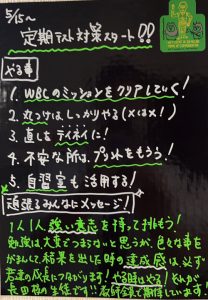 5/15〜
定期テスト対策スタート!!
やる事
1. WBCのミッションをクリアしていく!
2. 丸つけはしっかりやる(×は×!)
3. 直しをテイネイに!
4. 不安な所は、プリントをもらう!
5. 自習室も活用する!
頑張るみんなにメッセージ!
1人1人、強い意志を持って挑もう!
勉強は大変でつまらないと思うが、色々な事を
がまんして、結果を出した時の達成感は必ず
君達の成長につながります!やる時はやる!それが
長田校の生徒です!!教師全員で期待しています!